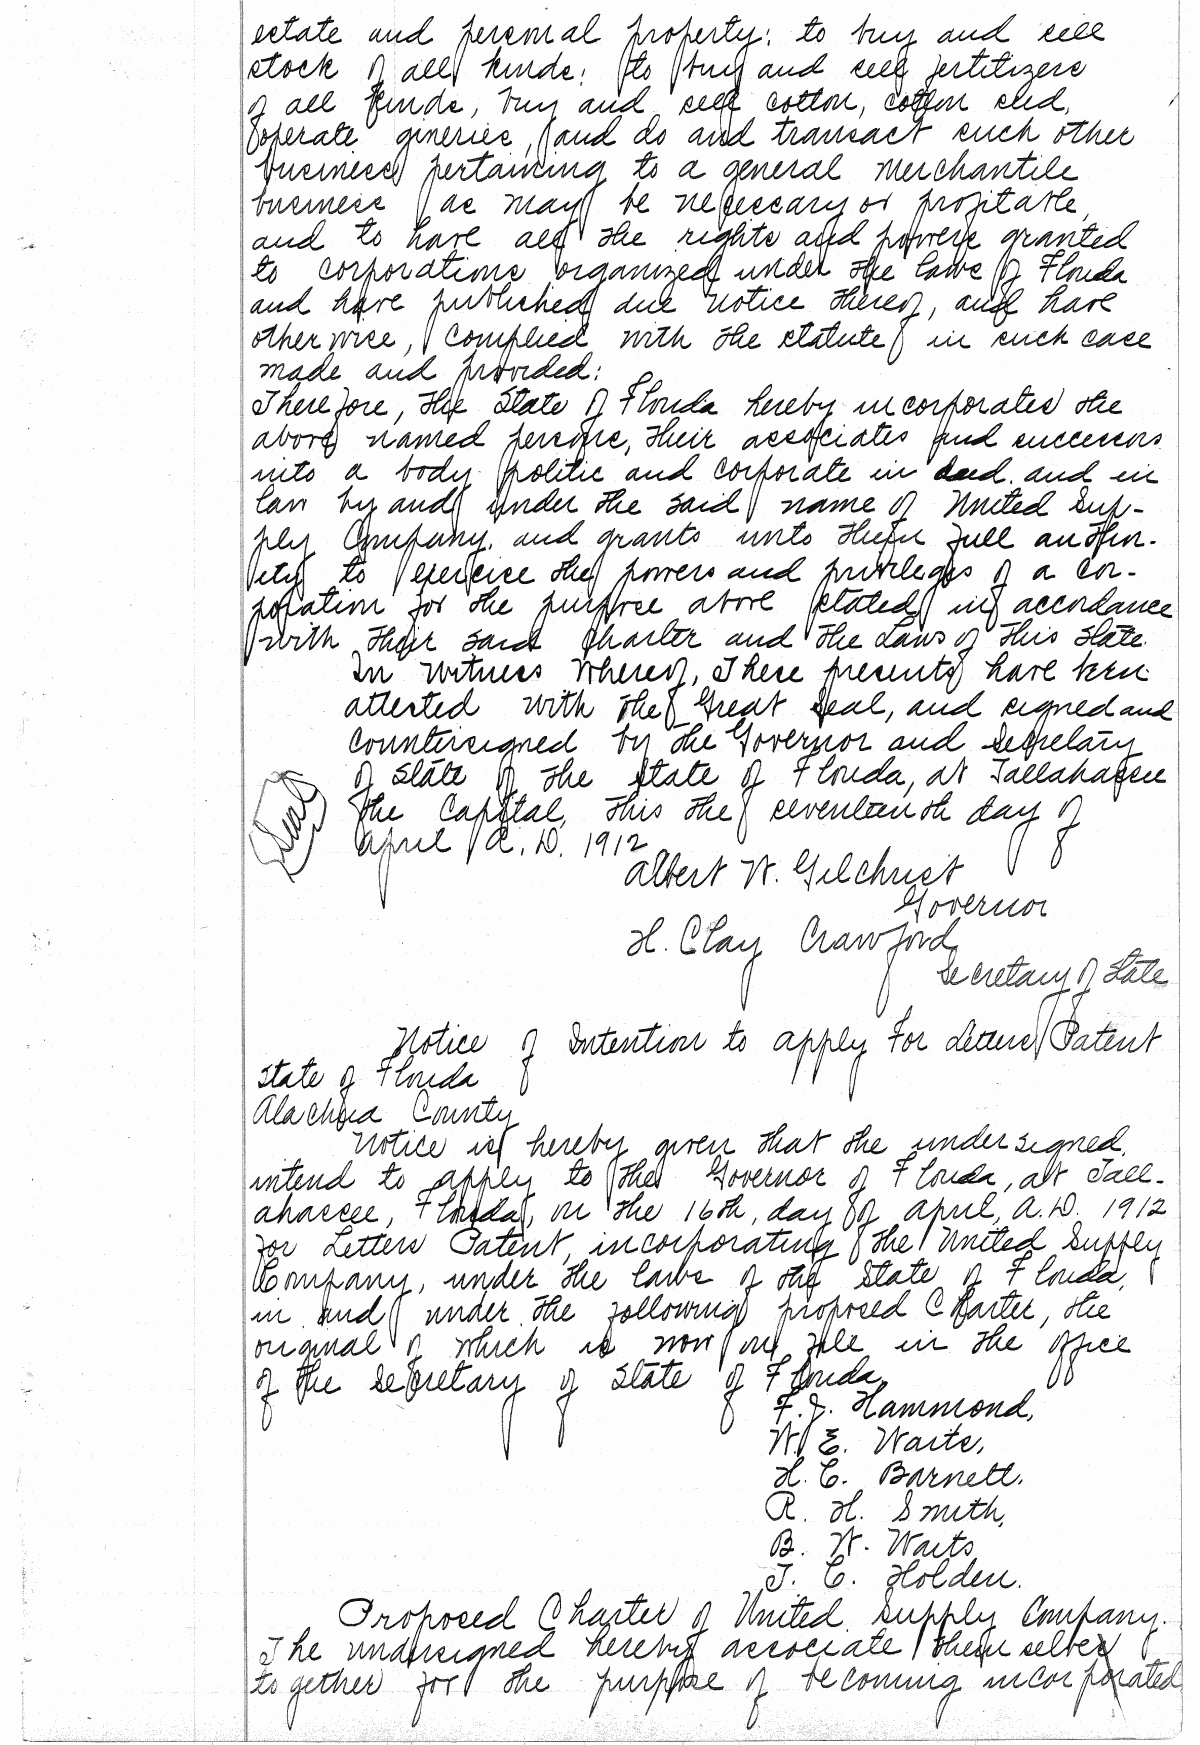 estate and personal property: to buy and sell
stock of all kinds: to buy and sell fertilizers
of all kinds, buy and sell cotton, cotton seed,
operate gineries, and do and transact such other
business pertaining to a general merchantile
business as may be necessary or profitable,
and to have all the rights and powers granted
to corporations organized under the laws of Florida
and have published due notice thereof, and have
otherwise, complied with the statute in such case
made and provided:
Therefore, the State of Florida hereby incorporates the
above named persons, their associates and successors
into a body politic and corporate in deed and in
law by and under the said name of United Sup-
ply Company, and grants unto them full author-
ity to exercise the powers and privileges of a cor-
poration for the purpose above stated in accordance
with their said Charter and the Laws of this State.
In Witness Whereof, These presents have been
attested with the Great Seal, and signed and
Countersigned by the Governor and Secretary
of State of the State of Florida, at Tallahassee
the Capital, this the seventeenth day of
(Seal)
April A.D. 1912
Albert W. Gilchrist
Governor
H. Clay Crawford
Secretary of State
Notice of Intention to apply For Letters Patent
State of Florida
Alachua County
Notice is hereby given that the undersigned,
intend to apply to the Governor of Florida, at Tall-
ahassee, Florida, on the 16th, day of April, A.D. 1912
for Letters Patent, incorporating the United Supply
Company, under the laws of the State of Florida,
in and under the following proposed Charter, the
original of which is now on file in the office
of the Secretary of State of Florida,
F. J. Hammond,
W. E. Waits,
H. C. Barnett.
R. H. Smith,
B. W. Waits
T. C. Holden.
Proposed Charter of United Supply Company.
The undersigned hereby associate themselves
together for the purpose of becoming incorporated